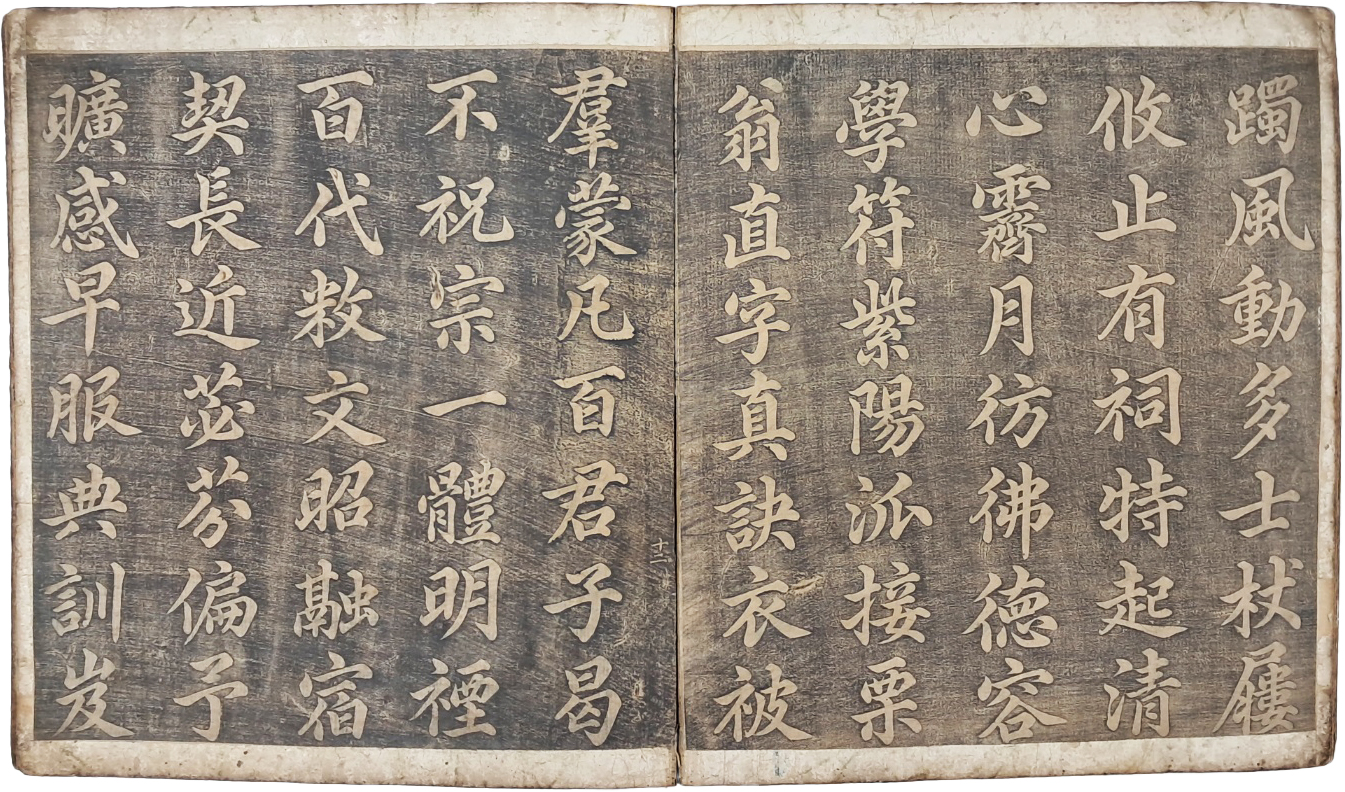 躅風動多士杖屨
攸止有祠特起清
心霽月彷彿德容
學符紫陽派接栗
翁直字真訣衣被
羣蒙凡百君子曷
不祝宗一體明禋
百代敎文昭融宿
契長近苾芬偏予
曠感早服典訓岌
十二